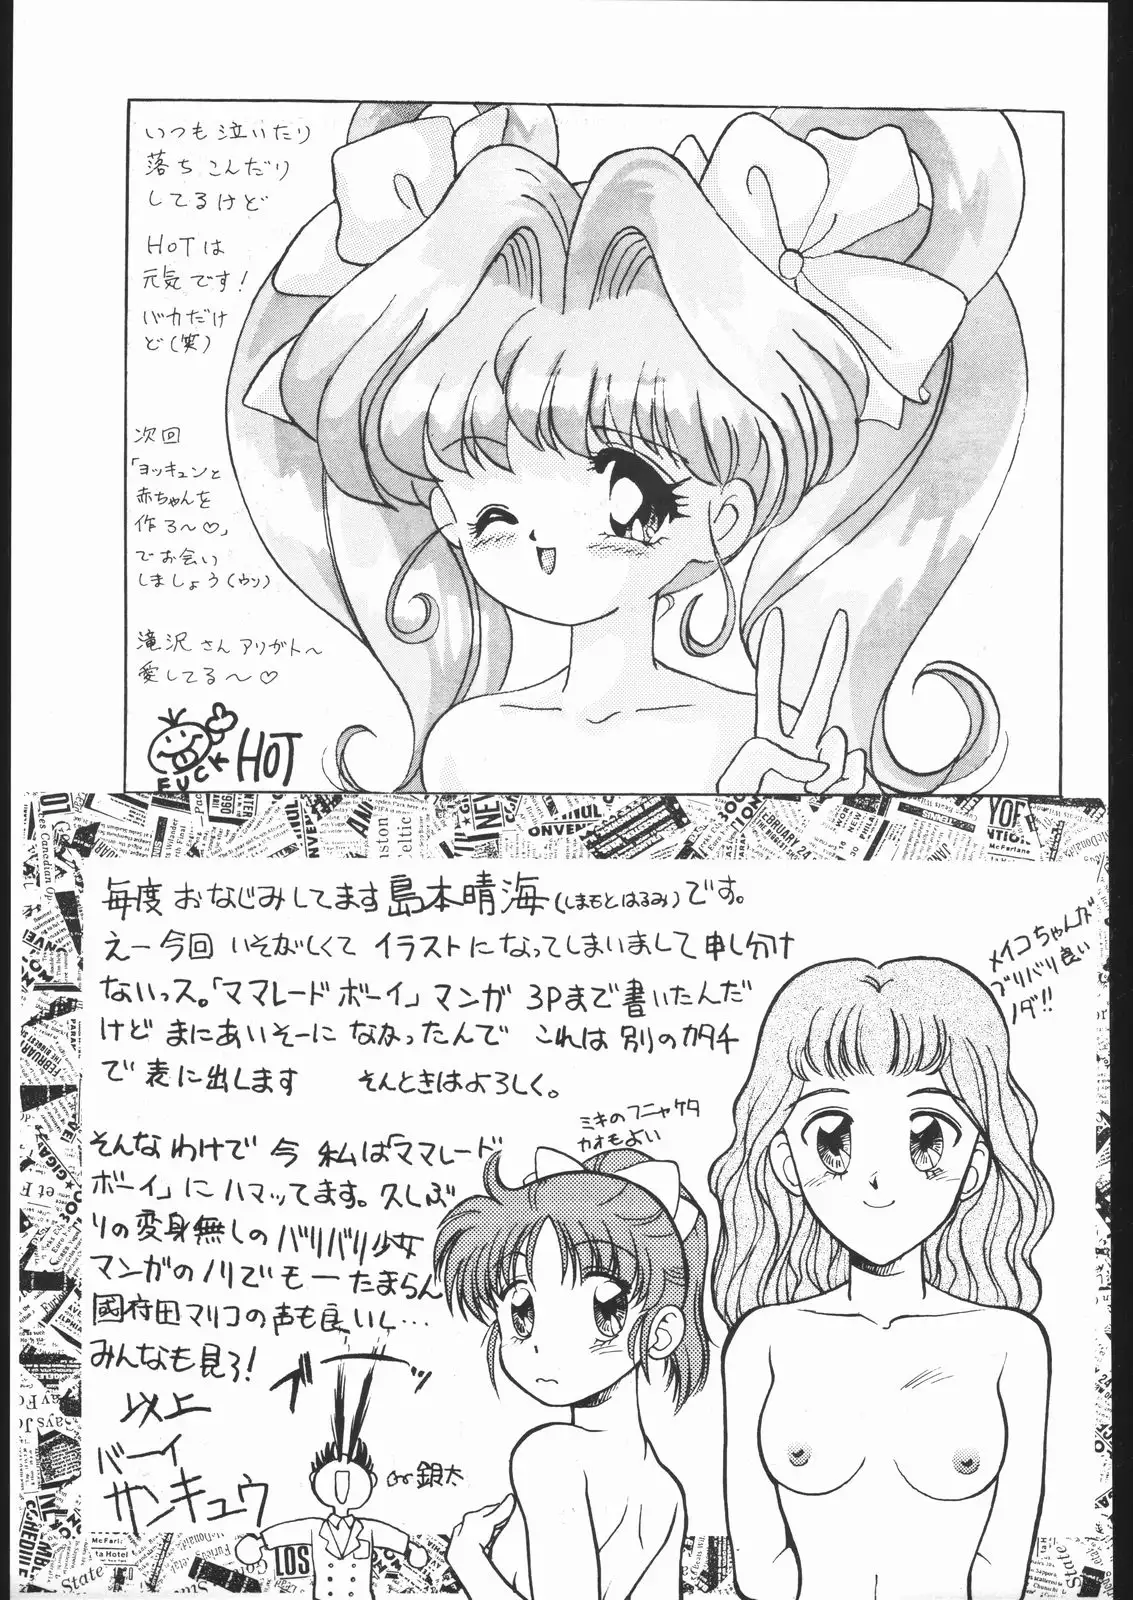 いつも泣いたり
落ちこんだり
してるけど
HOTは
元気です!
バカだけ
ど(笑)
次回
「ヨッキュンと
赤ちゃんを
作ろ〜♡」
でお会い
しましょう(ウソ)
滝沢さんアリガト〜
愛してる〜♡
FUCK HOT
毎度おなじみしてます島本晴海(しまもとはるみ)です。
えー今回いそがしくてイラストになってしまいまして申し分け
ないっス。「ママレードボーイ」マンガ 3Pまで書いたんだ
けどまにあいそーになかったんで これは別のカタチ
で表に出します そんときはよろしく。
メイコちゃんが
ブリバリ良い
ノダ!!
ミキのフニャケタ
カオもよい
そんなわけで今私は「ママレード
ボーイ」にハマッてます。久しぶ
りの変身無しのバリバリ少女
マンガのノリでモーたまらん
國府田マリコの声も良いし…
みんなも見ろ!
以上
バーイ
サンキュウ
銀太